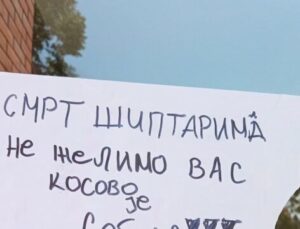 СМРТ ШИПТАРИМА
НЕ ЖЕЛИМО ВАС
КОСОВО
ЈЕ